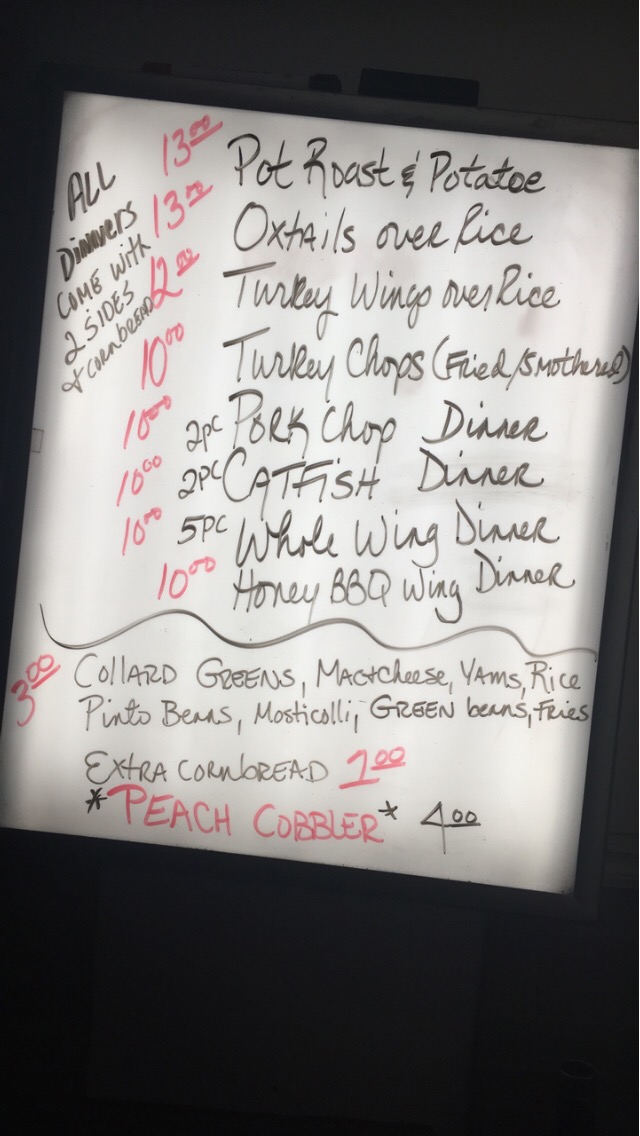 ALL
Dinners
COME WITH
2 SIDES
& CORNBREAD
13.00 Pot Roast & Potatoe
13.00 Oxtails over Rice
12.00 Turkey Wings over Rice
10.00 Turkey Chops (Fried/Smothered)
10.00 2pc Pork Chop Dinner
10.00 2pc CATFISH Dinner
10.00 5pc Whole Wing Dinner
10.00 Honey BBQ Wing Dinner
3.00 Collard Greens, Mac+cheese, Yams, Rice
Pinto Beans, Mosticolli, GREEN beans, Fries
EXTRA CORNBREAD 1.00
*PEACH COBBLER* 4.00